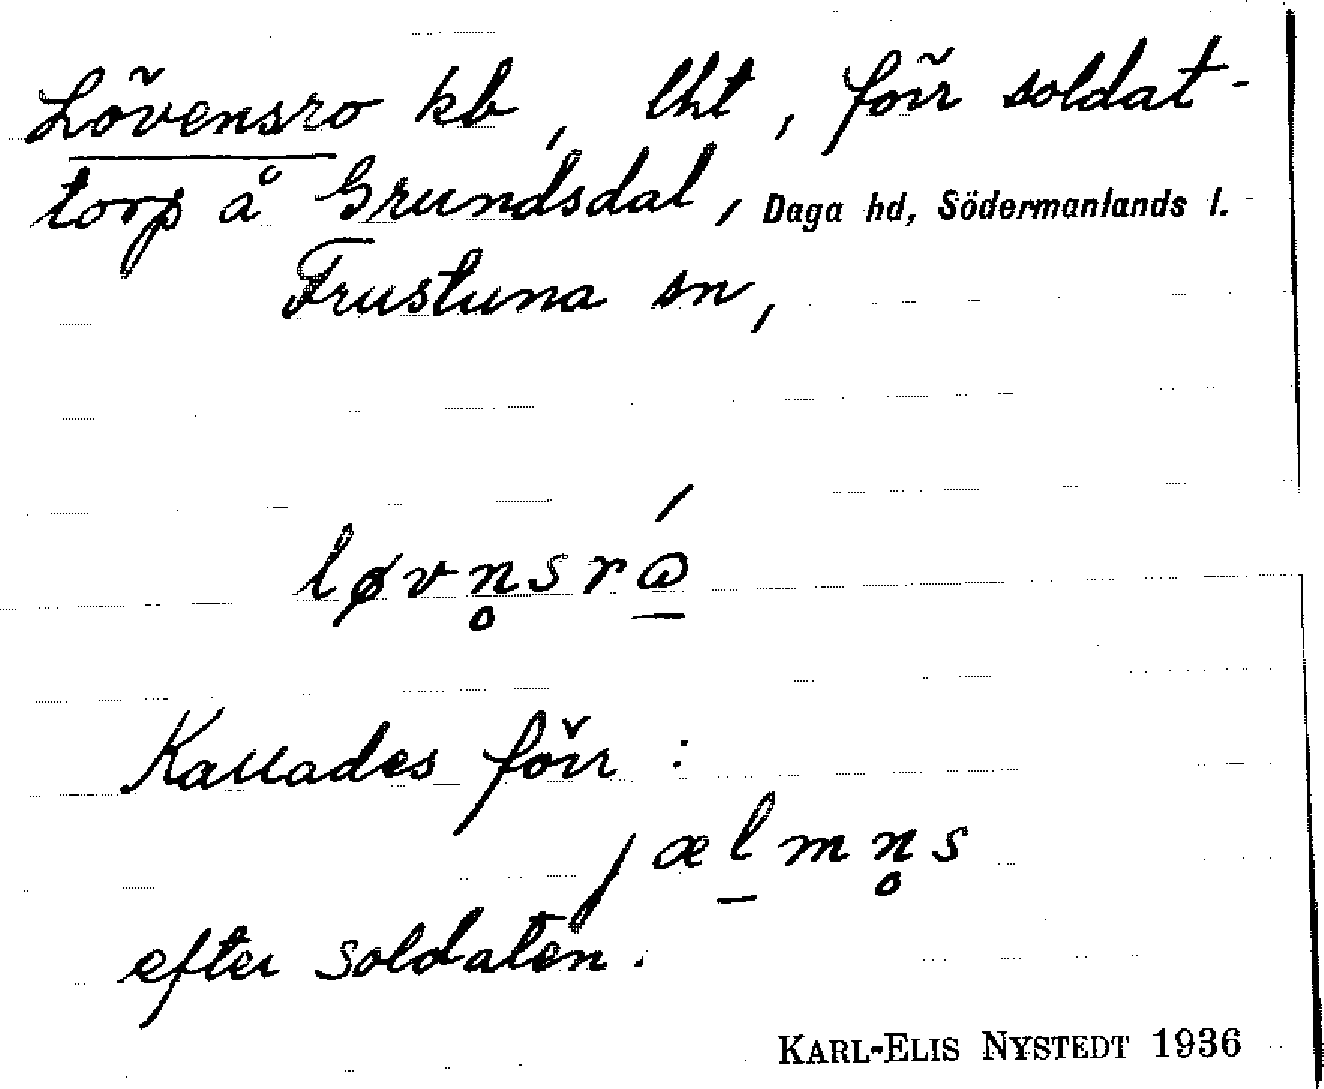 Lövensro kb, lht, förr soldat-
torp å Grundsdal, Daga hd, Södermanlands l.
Frustuna sn,
løvn̥srɷ̲́
Kallades förr :
jæl̲mn̥s
efter soldaten.
KARL-ELIS NYSTEDT 1936